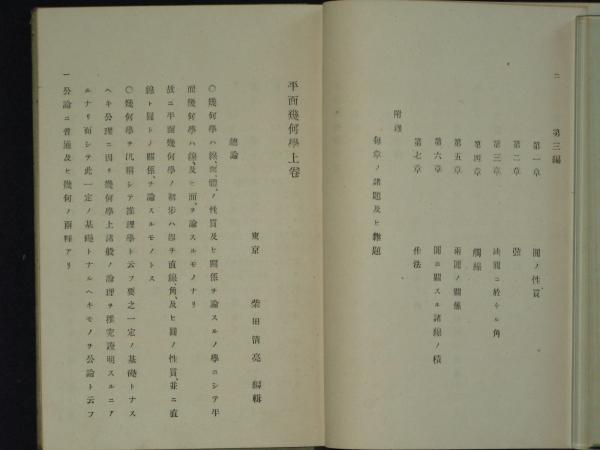 二
第三編
第一章 圓ノ性質
第二章 弦
第三章 諸圓ニ於ケル角
第四章 觸線
第五章 兩圓ノ關係
第六章 圓ニ關スル諸線ノ積
第七章 作法
附理
每章ノ諸題及ヒ雜題
平面幾何學上卷
東京 柴田清亮 編輯
總論
〇幾何學ハ線、面、體、ノ性質及ヒ關係ヲ論スルノ學ニシテ平
面幾何學ハ線、及ヒ面、ヲ論スルモノナリ
故ニ平面幾何學ノ初步ハ專ヲ直線、角、及ヒ圓ノ性質、並ニ直
線ト圓トノ關係、ヲ論スルモノトス
〇幾何學ヲ汎稱シテ推理學ト云フ要之一定ノ基礎トナス
ヘキ公理ニ因リ幾何學上諸般ノ論理ヲ推究證明スルニア
ルナリ而シテ此一定ノ基礎トナルヘキモノヲ公論ト云フ
一公論ニ普通及ヒ幾何ノ兩種アリ